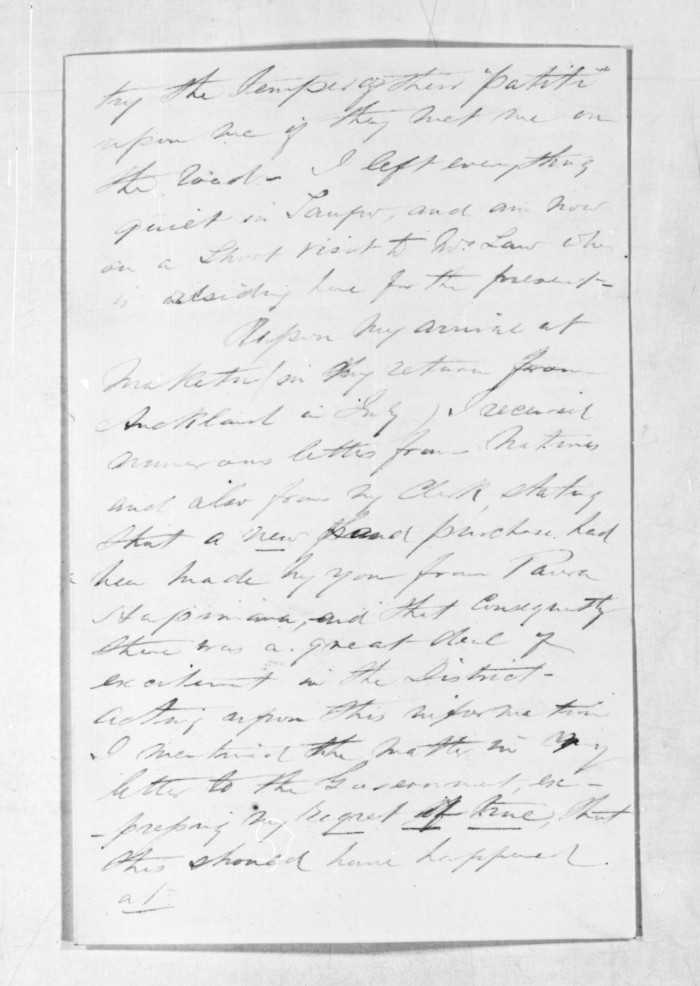 try the temper of their "patiti"
upon me if they met me on
the road - I left everything
quiet in Taupo, and am now
on a short visit to Mr Law who
is residing here for the present -
Upon my arrival at
Maketu (on my return from
Auckland in July) I received
numerous letters from Natives
and also from my Clerk, stating
that a new land purchase had
been made by you from
and that consequently
there was a great deal of
excitement in the District -
Acting upon this information
I mentioned the matter in my
letter to the Government, ex-
-pressing my regret if true, that
this should have happened
at